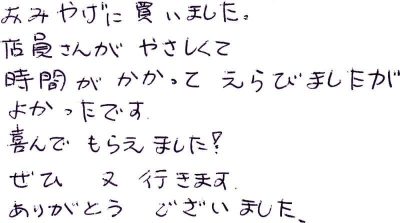 おみやげに 買いました。
店員さんが やさしくて
時間が かかって えらびましたが
よかったです.
喜んで もらえ ました?
ぜひ 又 行きます.
ありがとう ございました、